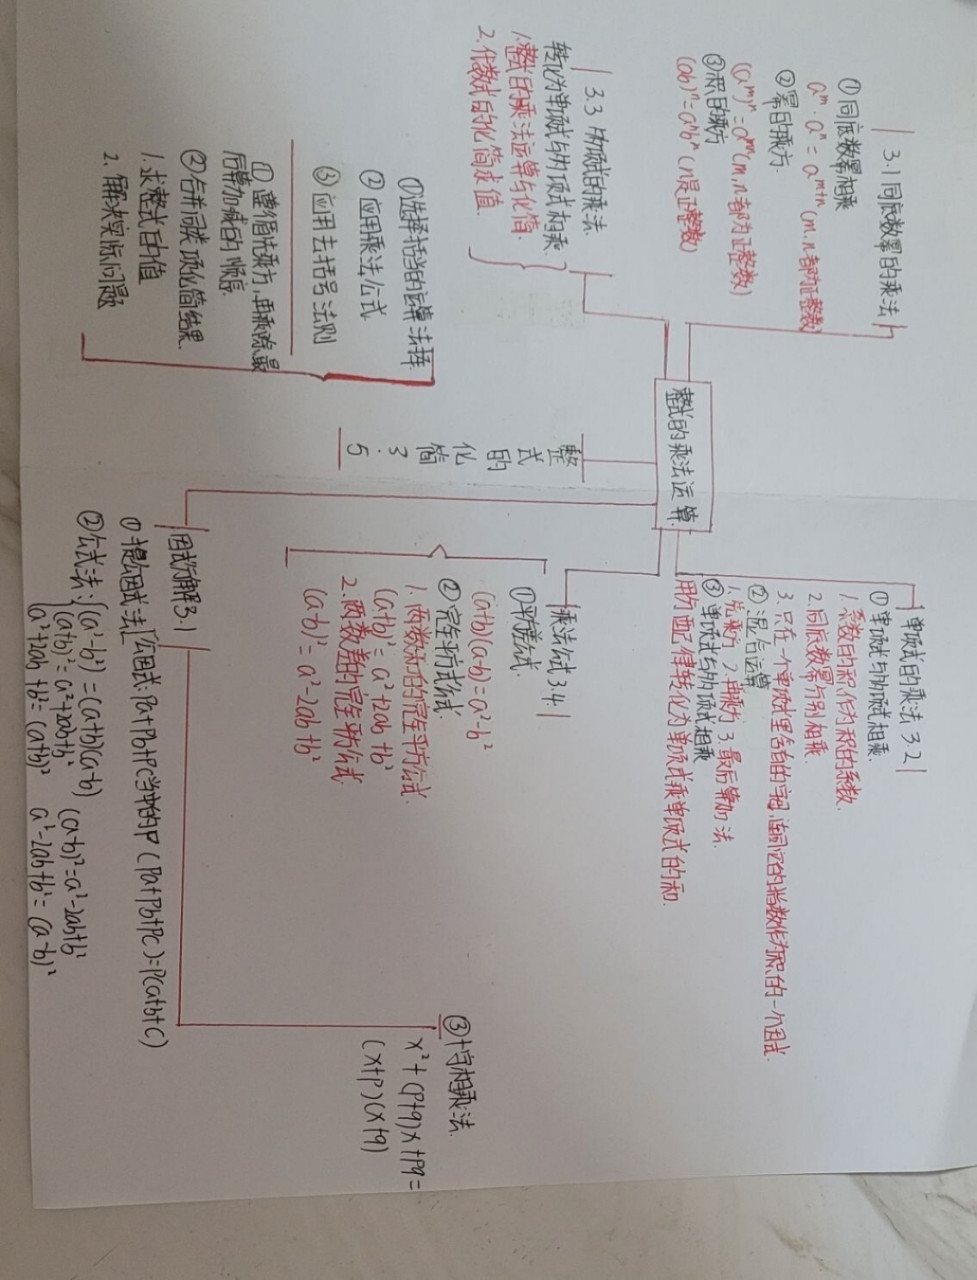 3.1同底数幂的乘法
①同底数幂相乘
aᵐ·aⁿ=aᵐ⁺ⁿ(m、n都为正整数)
②幂的乘方
(aᵐ)ⁿ=aᵐⁿ(m,n都为正整数)
③积的乘方
(ab)ⁿ=aⁿbⁿ(n是正整数)
3.3多项式的乘法
转化为单项式与多项式相乘.
1.整式的乘法运算与化简.
2.代数式的化简求值.
①选择恰当的运算法择
②应用乘法公式
③应用去括号法则
①遵循先乘方,再乘除,最
后算加减的顺序.
②合并同类项化简结果.
1.求整式的值
2.解决实际问题
整式的乘法运算
整式的化简3.5
单项式的乘法3.2
①单项式与单项式相乘.
1.系数的积,作为积的系数.
2.同底数幂分别相乘
3.只在一个单项式里含有的字母,连同它的指数作为积的一个因式.
②混合运算
1.先乘方 2.再乘方 3.最后算加法.
③单项式与多项式相乘
用分配律转化为单项式乘单项式的和.
乘法公式3.4
①平方差公式.
(a+b)(a-b)=a²-b²
②完全平方公式.
1.两数和的完全平方公式.
(a+b)²=a²+2ab+b²
2.两数差的完全平方公式.
(a-b)²=a²-2ab+b²
因式分解3.1
①提公因式法[公因式:Pa+Pb+PC当中的P(Pa+Pb+PC)=P(a+b+C)
②公式法:{(a²-b²)=(a+b)(a-b)
(a+b)²=a²+2ab+b² (a-b)²=a²-2ab+b²
(a²+2ab+b²=(a+b)² a²-2ab+b²=(a-b)²
③十字相乘法.
x²+(P+q)x+Pq=
(x+P)(x+q)